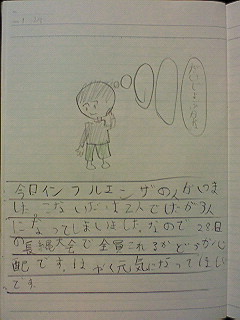 今日インフルエンザの人がいま
した。こないだは2人でしたが3人
になってしまいました。なので28日
の長縄大会で全員これるかどうか心
配です。はやく元気になってほしい
です。